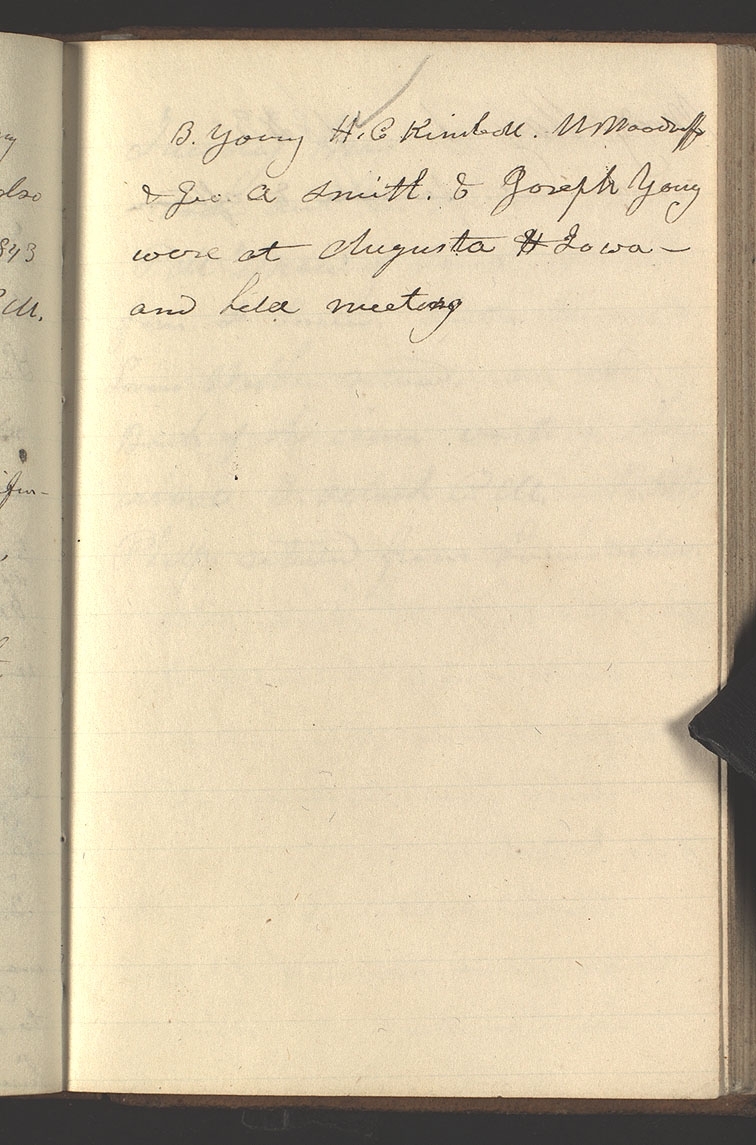 B. Young H. C Kimball. W Woodruff
& Geo. A Smith. & Joseph Young
were at Augusta Iowa —
and held meeting
also